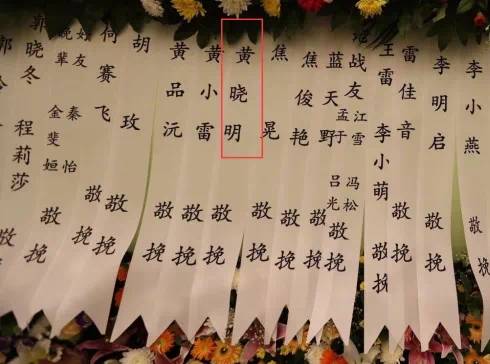 郭晓冬
程莉莎
敬挽
好友
晚辈
秦怡
金斐姮
敬挽
何赛飞
敬挽
胡玫
敬挽
黄品沅
敬挽
黄小雷
敬挽
黄晓明
敬挽
焦晃
敬挽
焦俊艳
敬挽
蓝天野
敬挽
战友
江雪
孟于
冯松
吕光
敬挽
王雷
李小萌
敬挽
雷佳音
敬挽
李明启
敬挽
李小燕